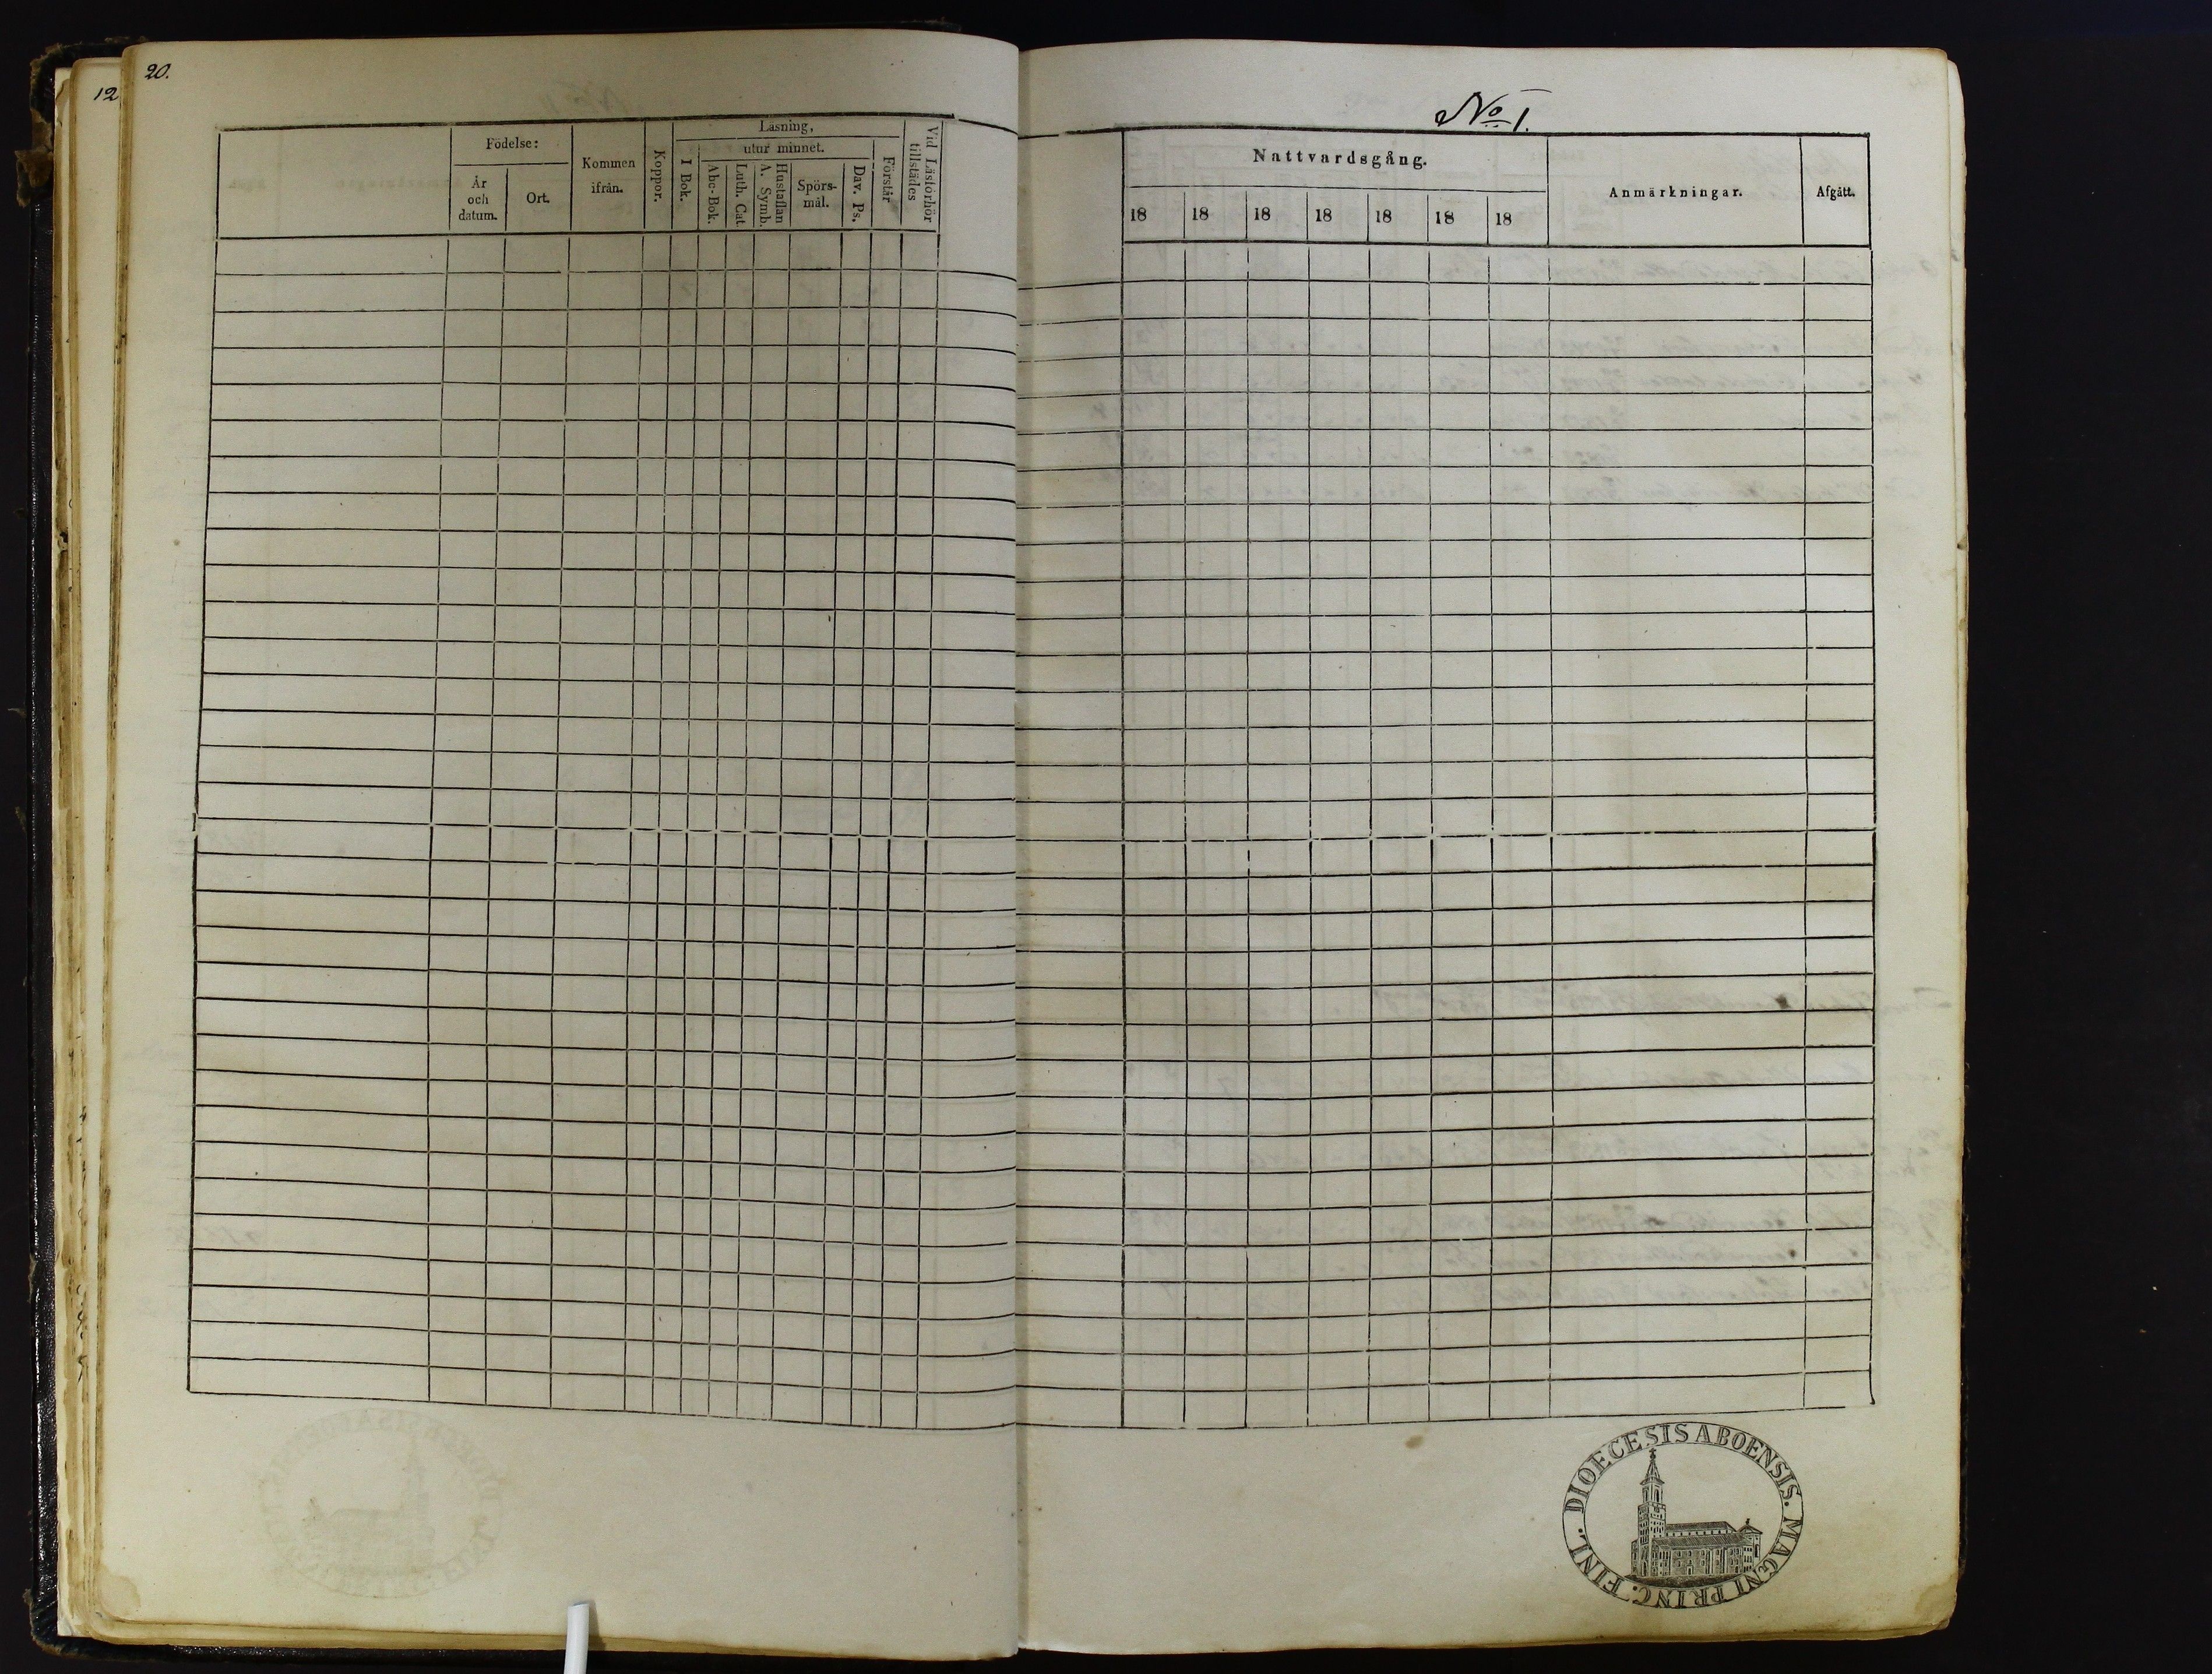 20.
12
Födelse:
År och datum.
Ort.
Kommen ifrån.
Koppor.
Läsning,
I Bok.
utur minnet.
Abc-Bok.
Luth. Cat.
Hustaflan
A. Symb.
Spörs-
mål.
Dav. Ps.
Förstår
Vid Läsförhör
tillstädes
No 1.
Nattvardsgång.
18 18 18 18 18 18 18
Anmärkningar.
Afgått.
DIOECESIS ABOENSIS. MAGNI PRINC. FINL.